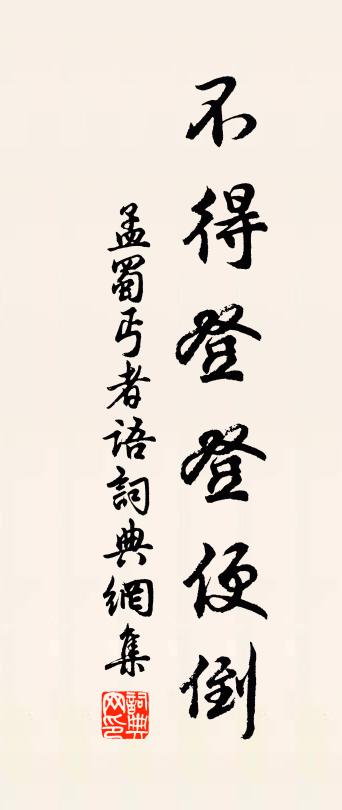 不得登登便倒
孟蜀丐者語詞典網集
詞典网印